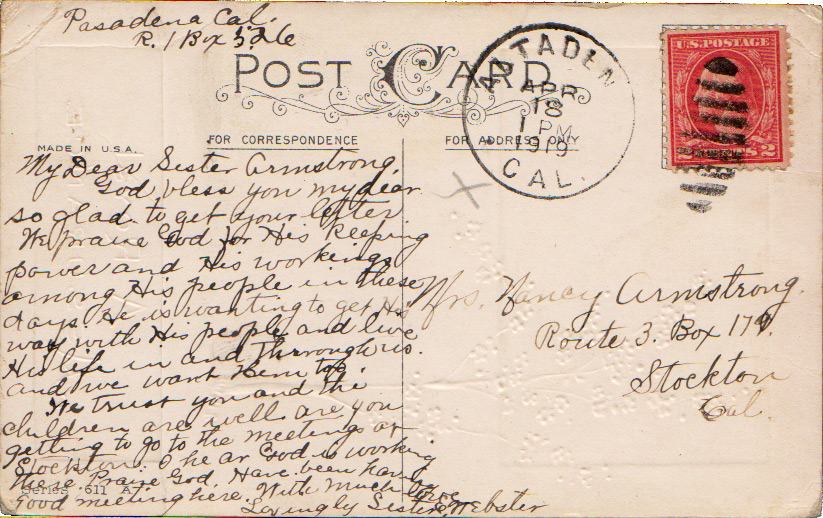 Pasadena Cal.
R. 1 Box 526
POST CARD
ALTADENA
APR
18
1 PM
1919
CAL.
U.S. POSTAGE
2 CENTS 2
MADE IN U.S.A.
FOR CORRESPONDENCE
FOR ADDRESS ONLY
My Dear Sister Armstrong,
God bless you my dear
so glad to get your letter.
We praise God for His keeping
power and His workings
among His people in these
days. He is wanting to get His
way with His people and live
His life in and through us.
and we want Him too.
We trust you and the
children are well are you
getting to go to the meetings at
Stockton. I hear God is working
there Praise God. Have been having
good meeting here. With Much love
Lovingly Sister Webster
Series 611 A
Mrs. Nancy Armstrong.
Route 3. Box 179.
Stockton
Cal.